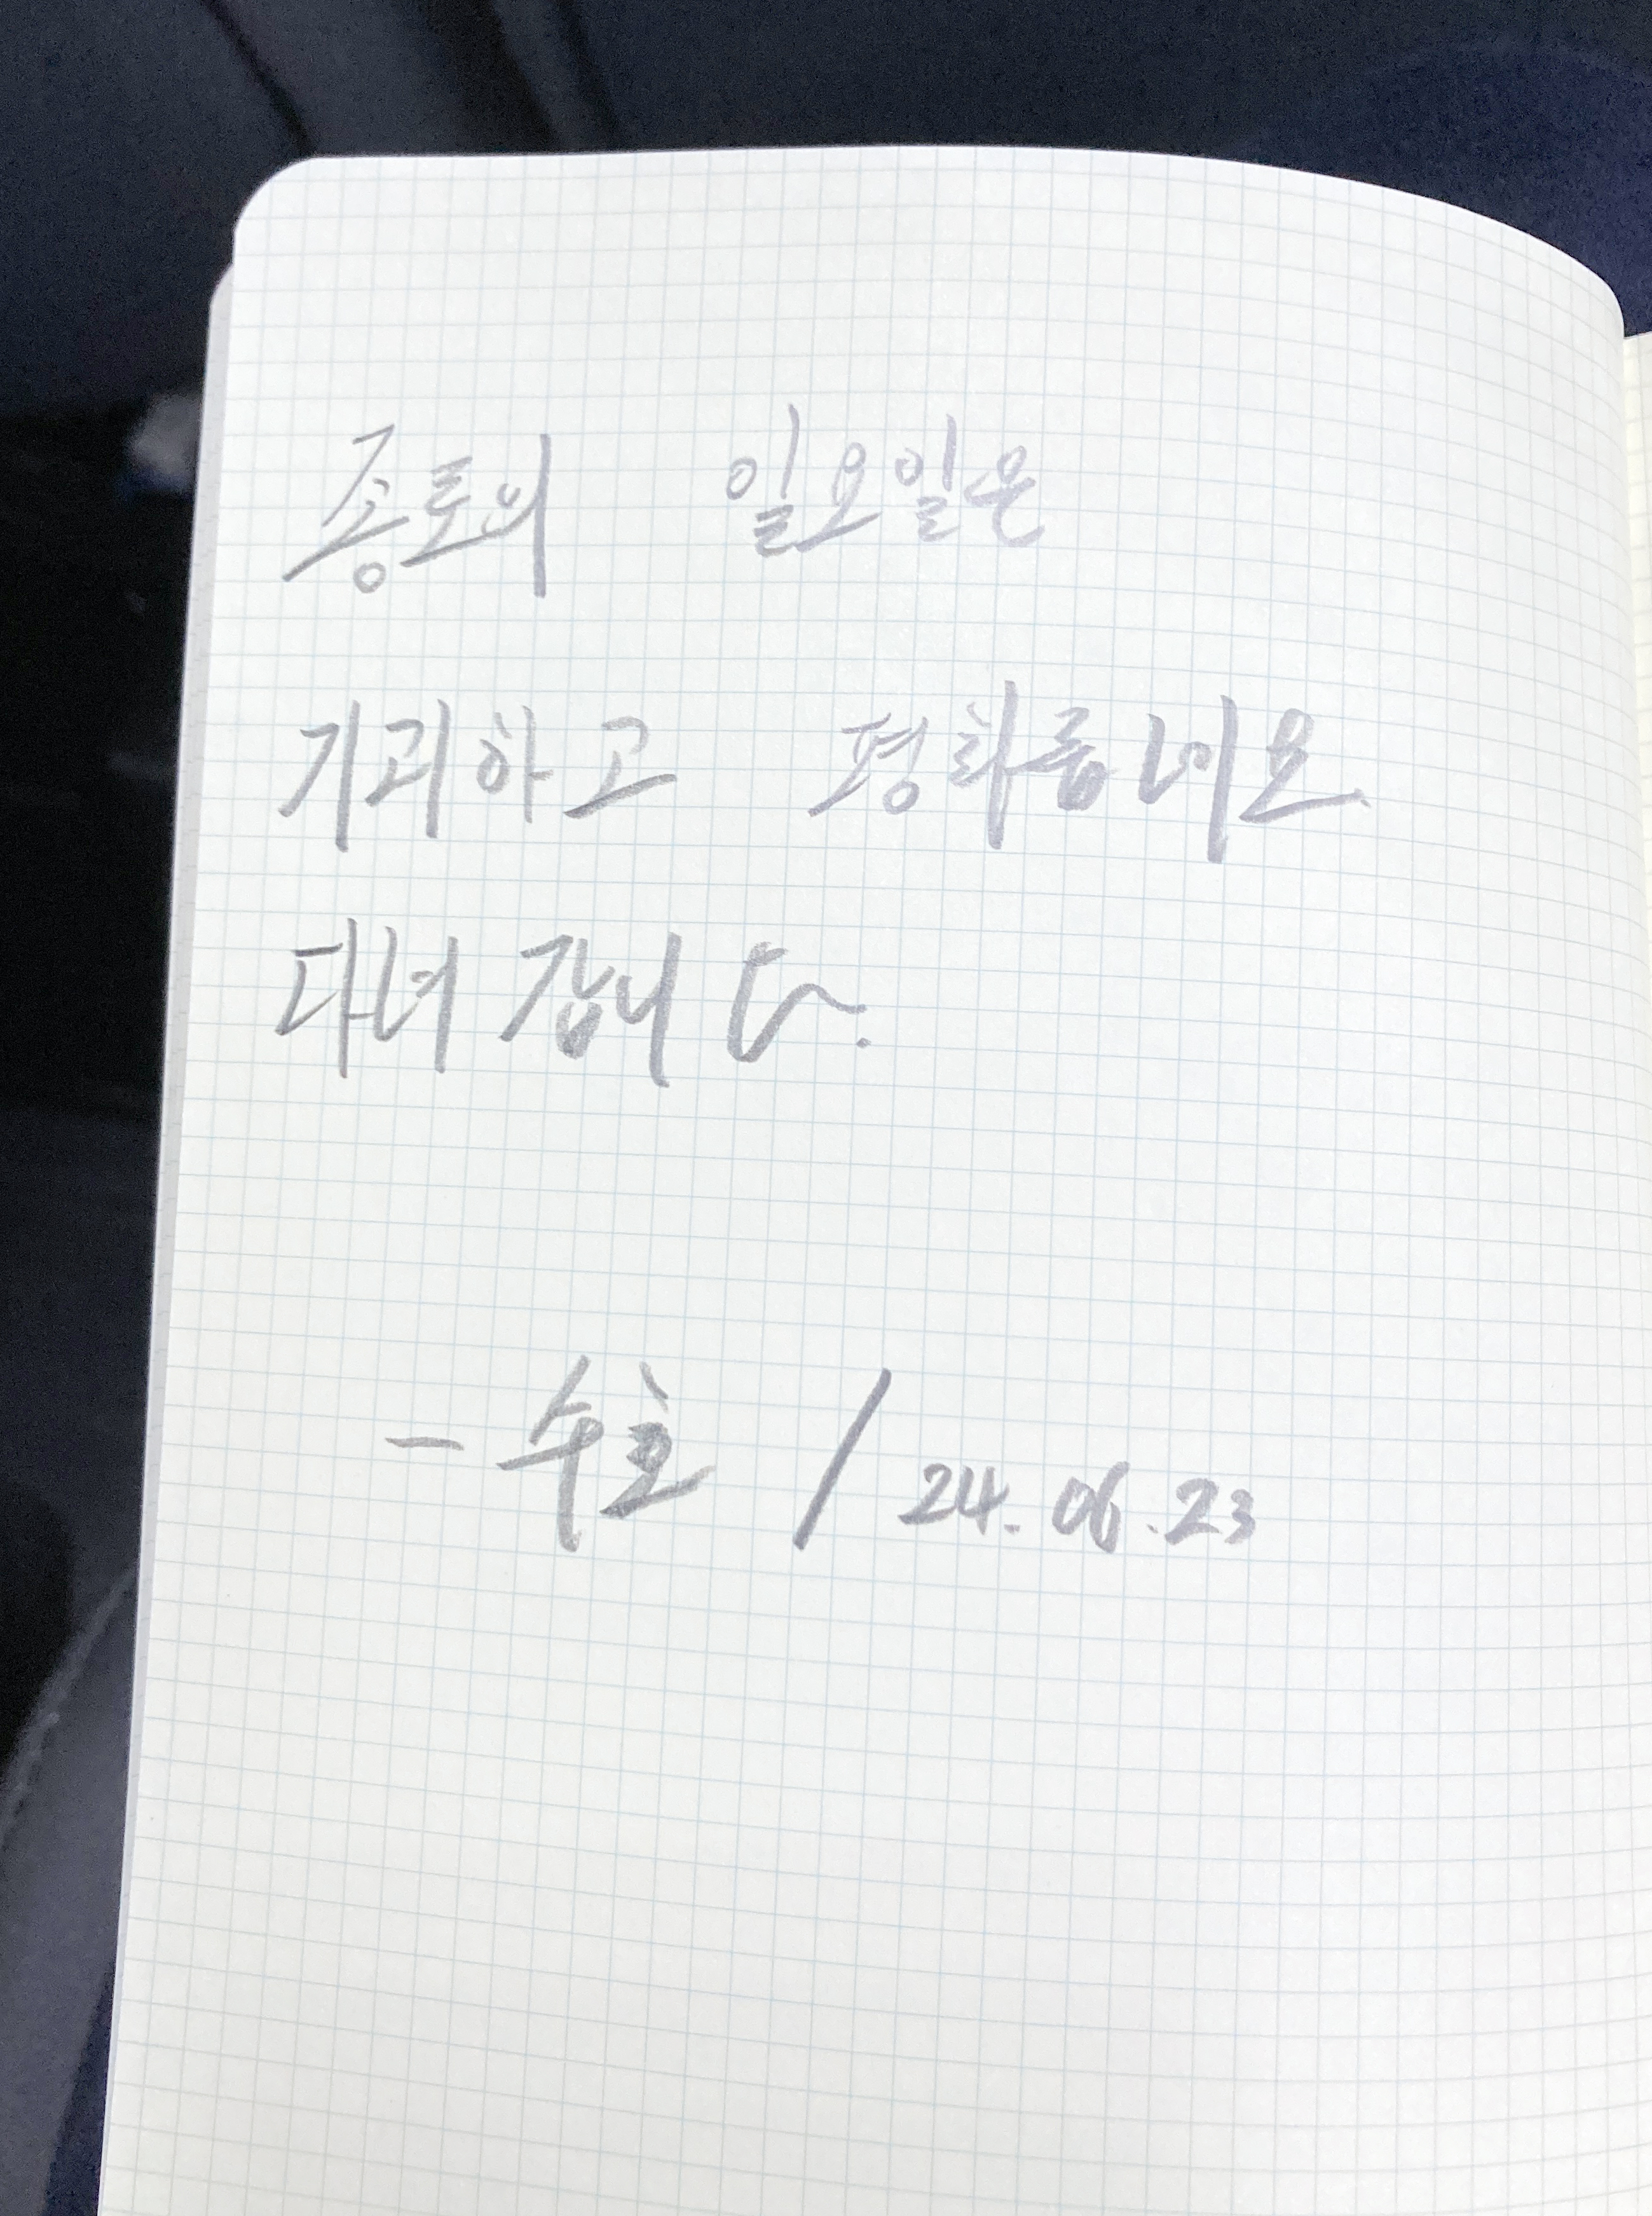 종토의 일요일은
기괴하고 평화롭네요
다녀갑니다.
- 수호 / 24.06.23